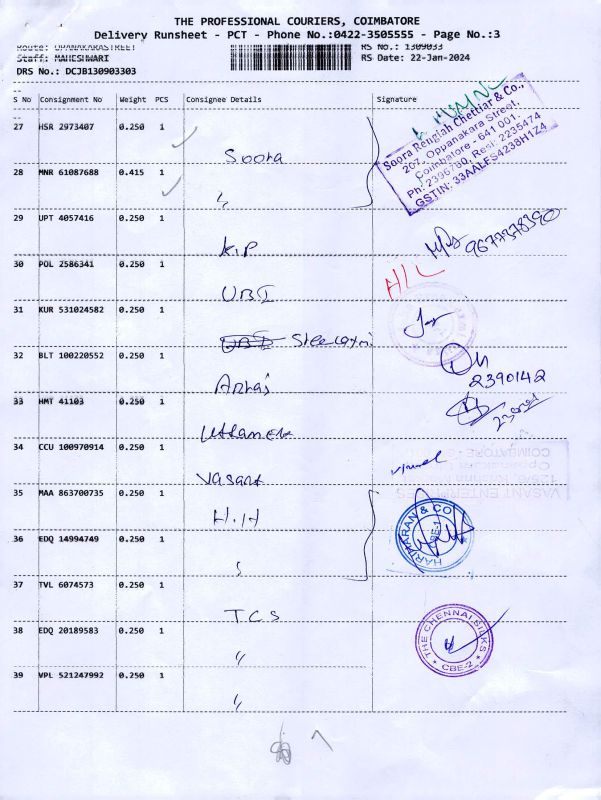 THE PROFESSIONAL COURIERS, COIMBATORE
Delivery Runsheet - PCT - Phone No.:0422-3505555 - Page No.:3
Route: OPANAKARASTREET RS No.: 1309033
Staff: MAHESHWARI RS Date: 22-Jan-2024
DRS No.: DCJB130903303
S No Consignment No Weight PCS Consignee Details Signature
27 HSR 2973407 0.250 1
Soora
Soora Rengiah Chettiar & Co.,
207, Oppanakara Street,
Coimbatore - 641 001.
Ph: 2396760, Resi: 2235474
GSTIN: 33AALFS4238H1Z4
28 MNR 61087688 0.415 1
"
29 UPT 4057416 0.250 1
K.P 9677378390
30 POL 2586341 0.250 1
UBI
31 KUR 531024582 0.250 1
UBI
32 BLT 100220552 0.250 1
2390142
33 HMT 41103 0.250 1
34 CCU 100970914 0.250 1
Vasant
VASANT ENTERPRISES
COIMBATORE
35 MAA 863700735 0.250 1
H.H
HARIHARAN & CO
CBE-1
36 EDQ 14994749 0.250 1
37 TVL 6074573 0.250 1
TCS
THE CHENNAI SILKS
CBE-2
38 EDQ 20189583 0.250 1
"
39 VPL 521247992 0.250 1
"